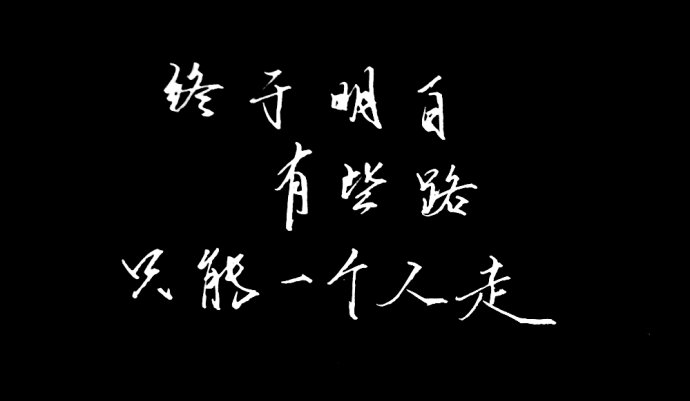 终于明白
有些路
只能一个人走